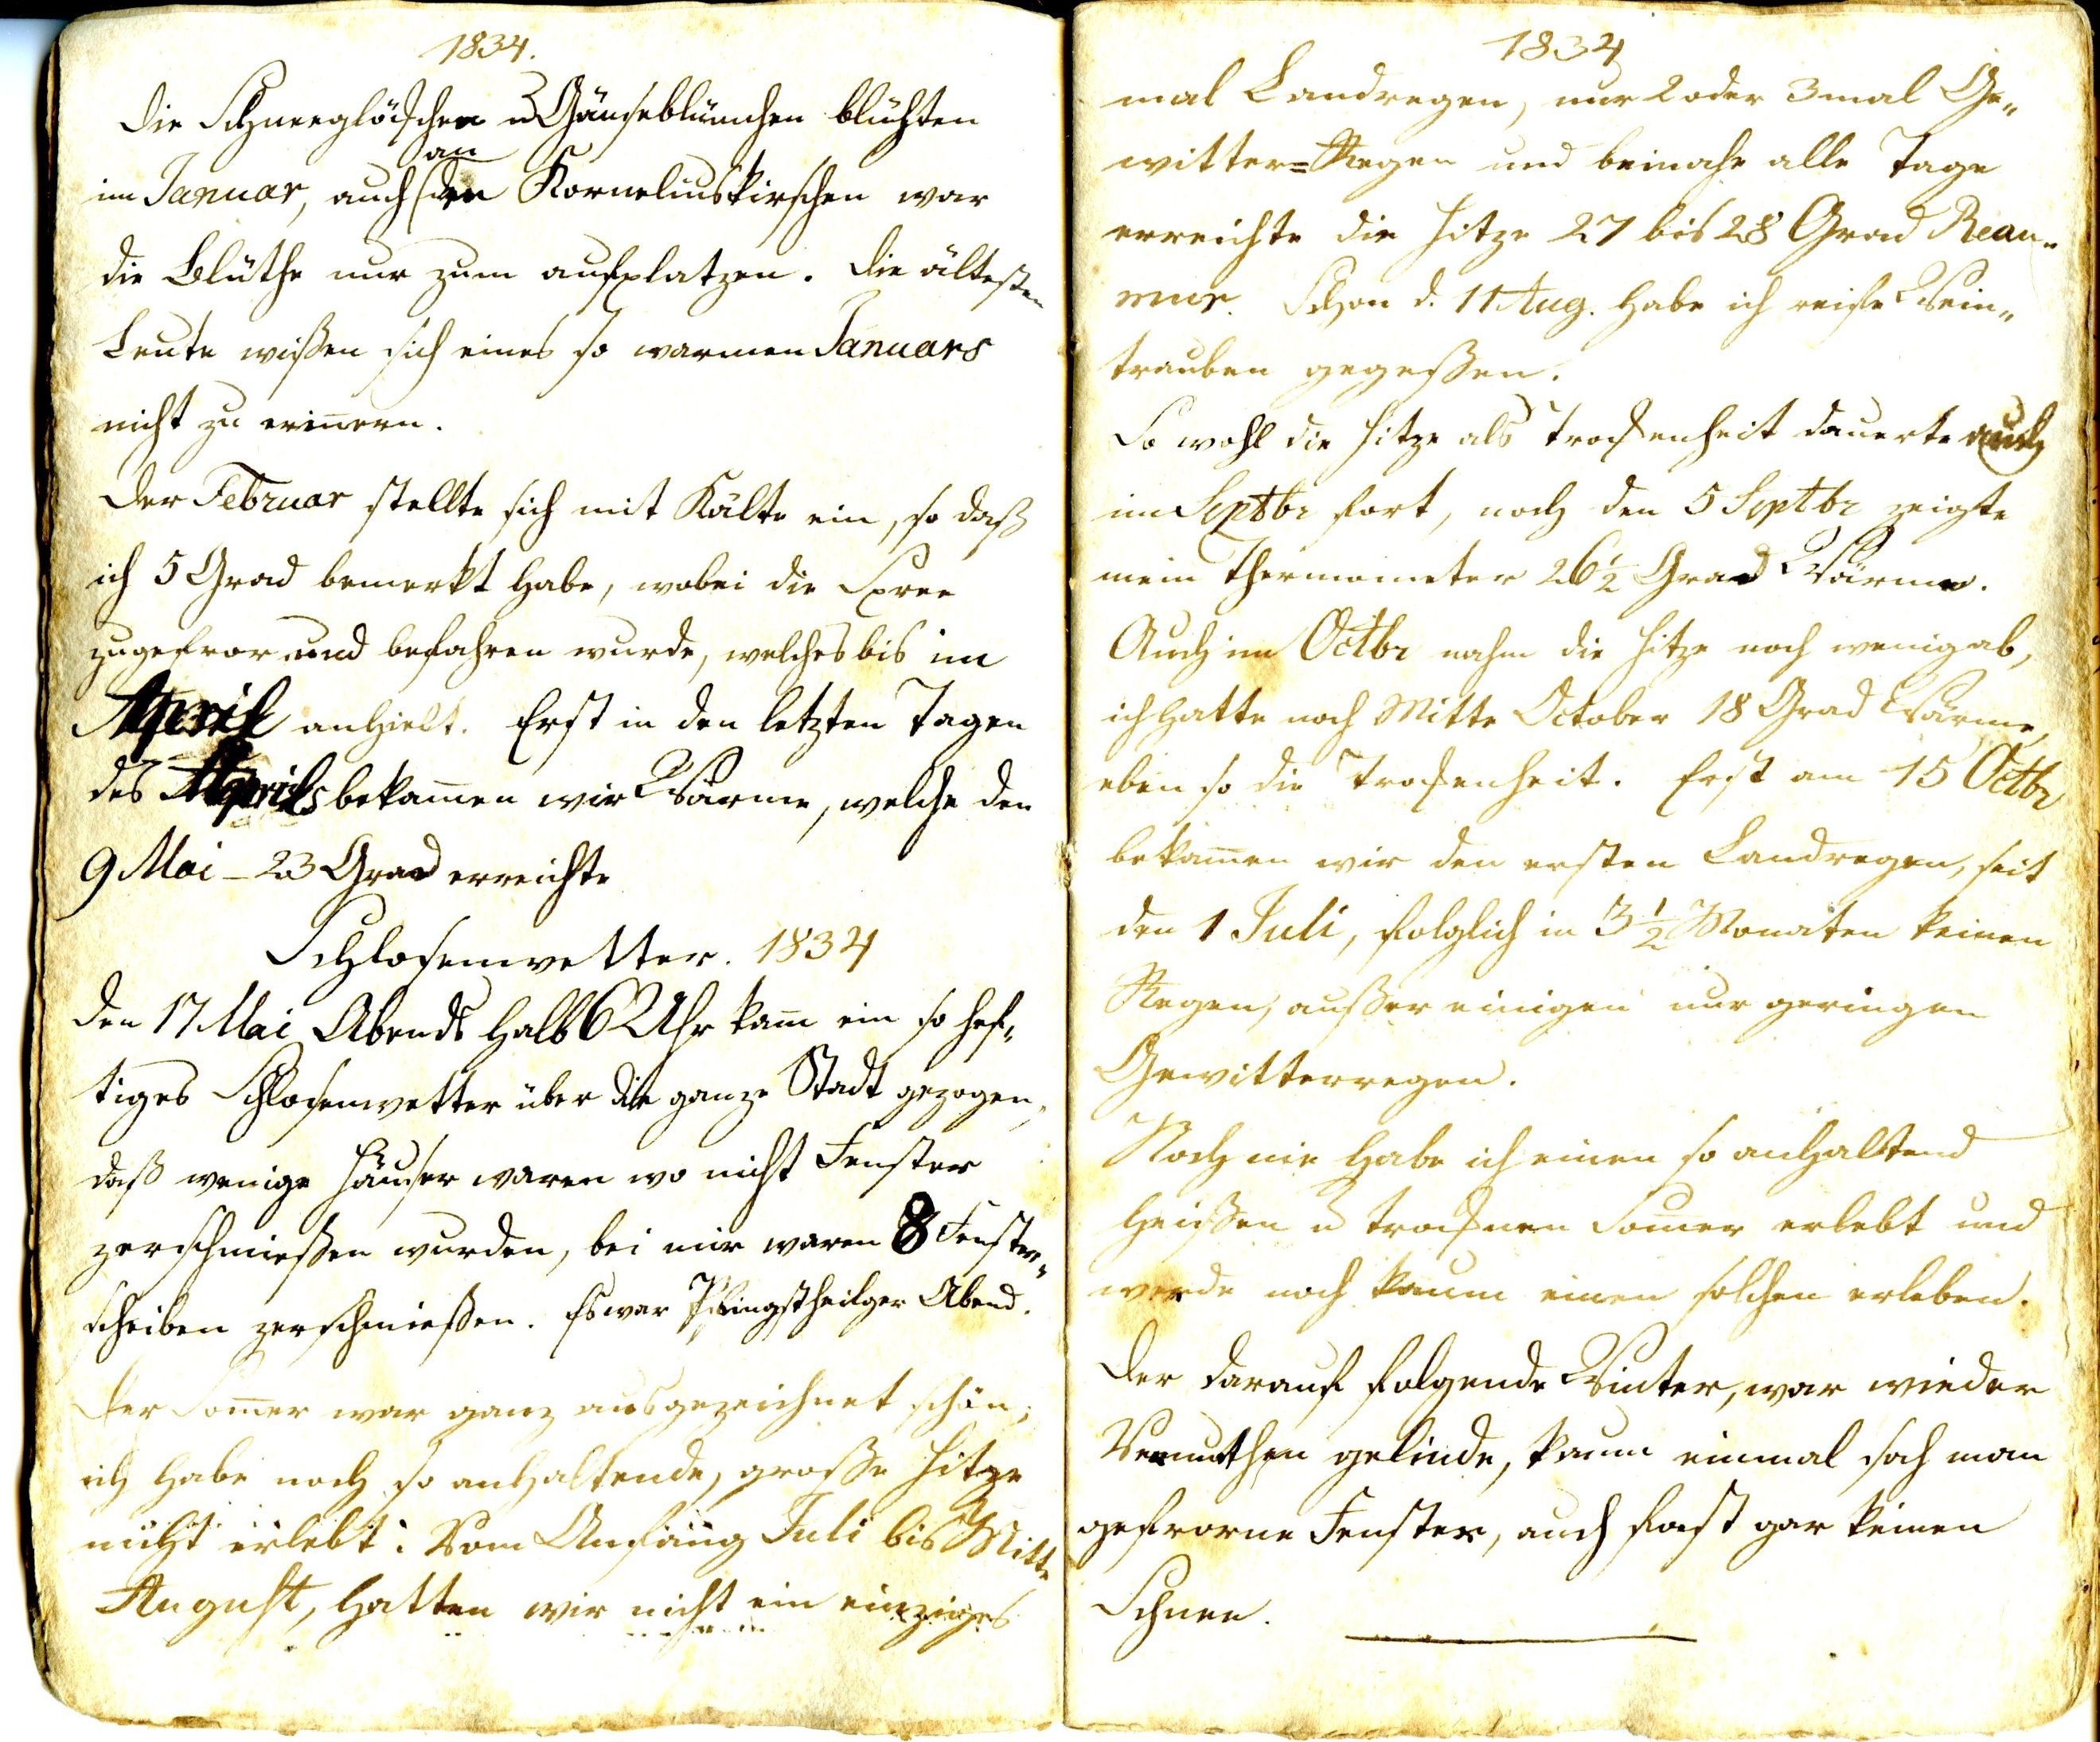 1834.
Die Schneeglöckchen u Gänseblümchen blühten
an
im Januar, auch den Korneliuskirschen war
die Blüthe nur zum aufplatzen. Die ältesten
Leute wißen sich eines so warmen Januars
nicht zu erin̄ern.
Der Februar stellte sich mit Kälte ein, so daß
ich 5 Grad bemerkt habe, wobei die Spree
zugefror und befahren wurde, welches bis im
April anhielt. Erst in den letzten Tagen
des Aprils bekam̄en wir Wärme, welche den
9 Mai - 23 Grad erreichte
Schloßenwetter. 1834
Den 17 Mai Abends halb 6 Uhr kam̄ ein so hef„
tiges Schloßenwetter über die ganze Stadt gezogen,
daß wenige Häuser waren wo nicht Fenster
zerschmießen wurden, bei mir waren 8 Fenster„
scheiben zerschmießen. Es war Pfingstheilger Abend.
Der Som̄er war ganz ausgezeichnet schön;
ich habe noch so anhaltende, große Hitze
nicht erlebt. Vom Anfang Juli bis Mitte
August, hatten wir nicht ein einziges
1834
mal Landregen, nur 2 oder 3 mal Ge„
witter=Regen und beinahe alle Tage
erreichte die Hitze 27 bis 28 Grad Reau„
mur. Schon d. 11 Aug. habe ich reife Wein„
trauben gegeßen.
So wohl die Hitze als Trockenheit dauerte auch
im Septbr fort, noch den 5 Septbr zeigte
mein Thermometer 26½ Grad Wärme.
Auch im Octbr nahm die Hitze noch wenig ab,
ich hatte noch Mitte October 18 Grad Wärme,
eben so die Trockenheit. Erst am 15 Octbr
bekam̄en wir den ersten Landregen, seit
den 1 Juli, folglich in 3½ Monaten keinen
Regen, außer einigen nur geringen
Gewitterregen.
Noch nie habe ich einen so anhaltend
heißen u trocknen Som̄er erlebt und
werde noch kaum einen solchen erleben.
Der darauf folgende Winter, war wieder
Vermuthen gelinde, kaum einmal sah man
gefrorne Fenster, auch fast gar keinen
Schnee.